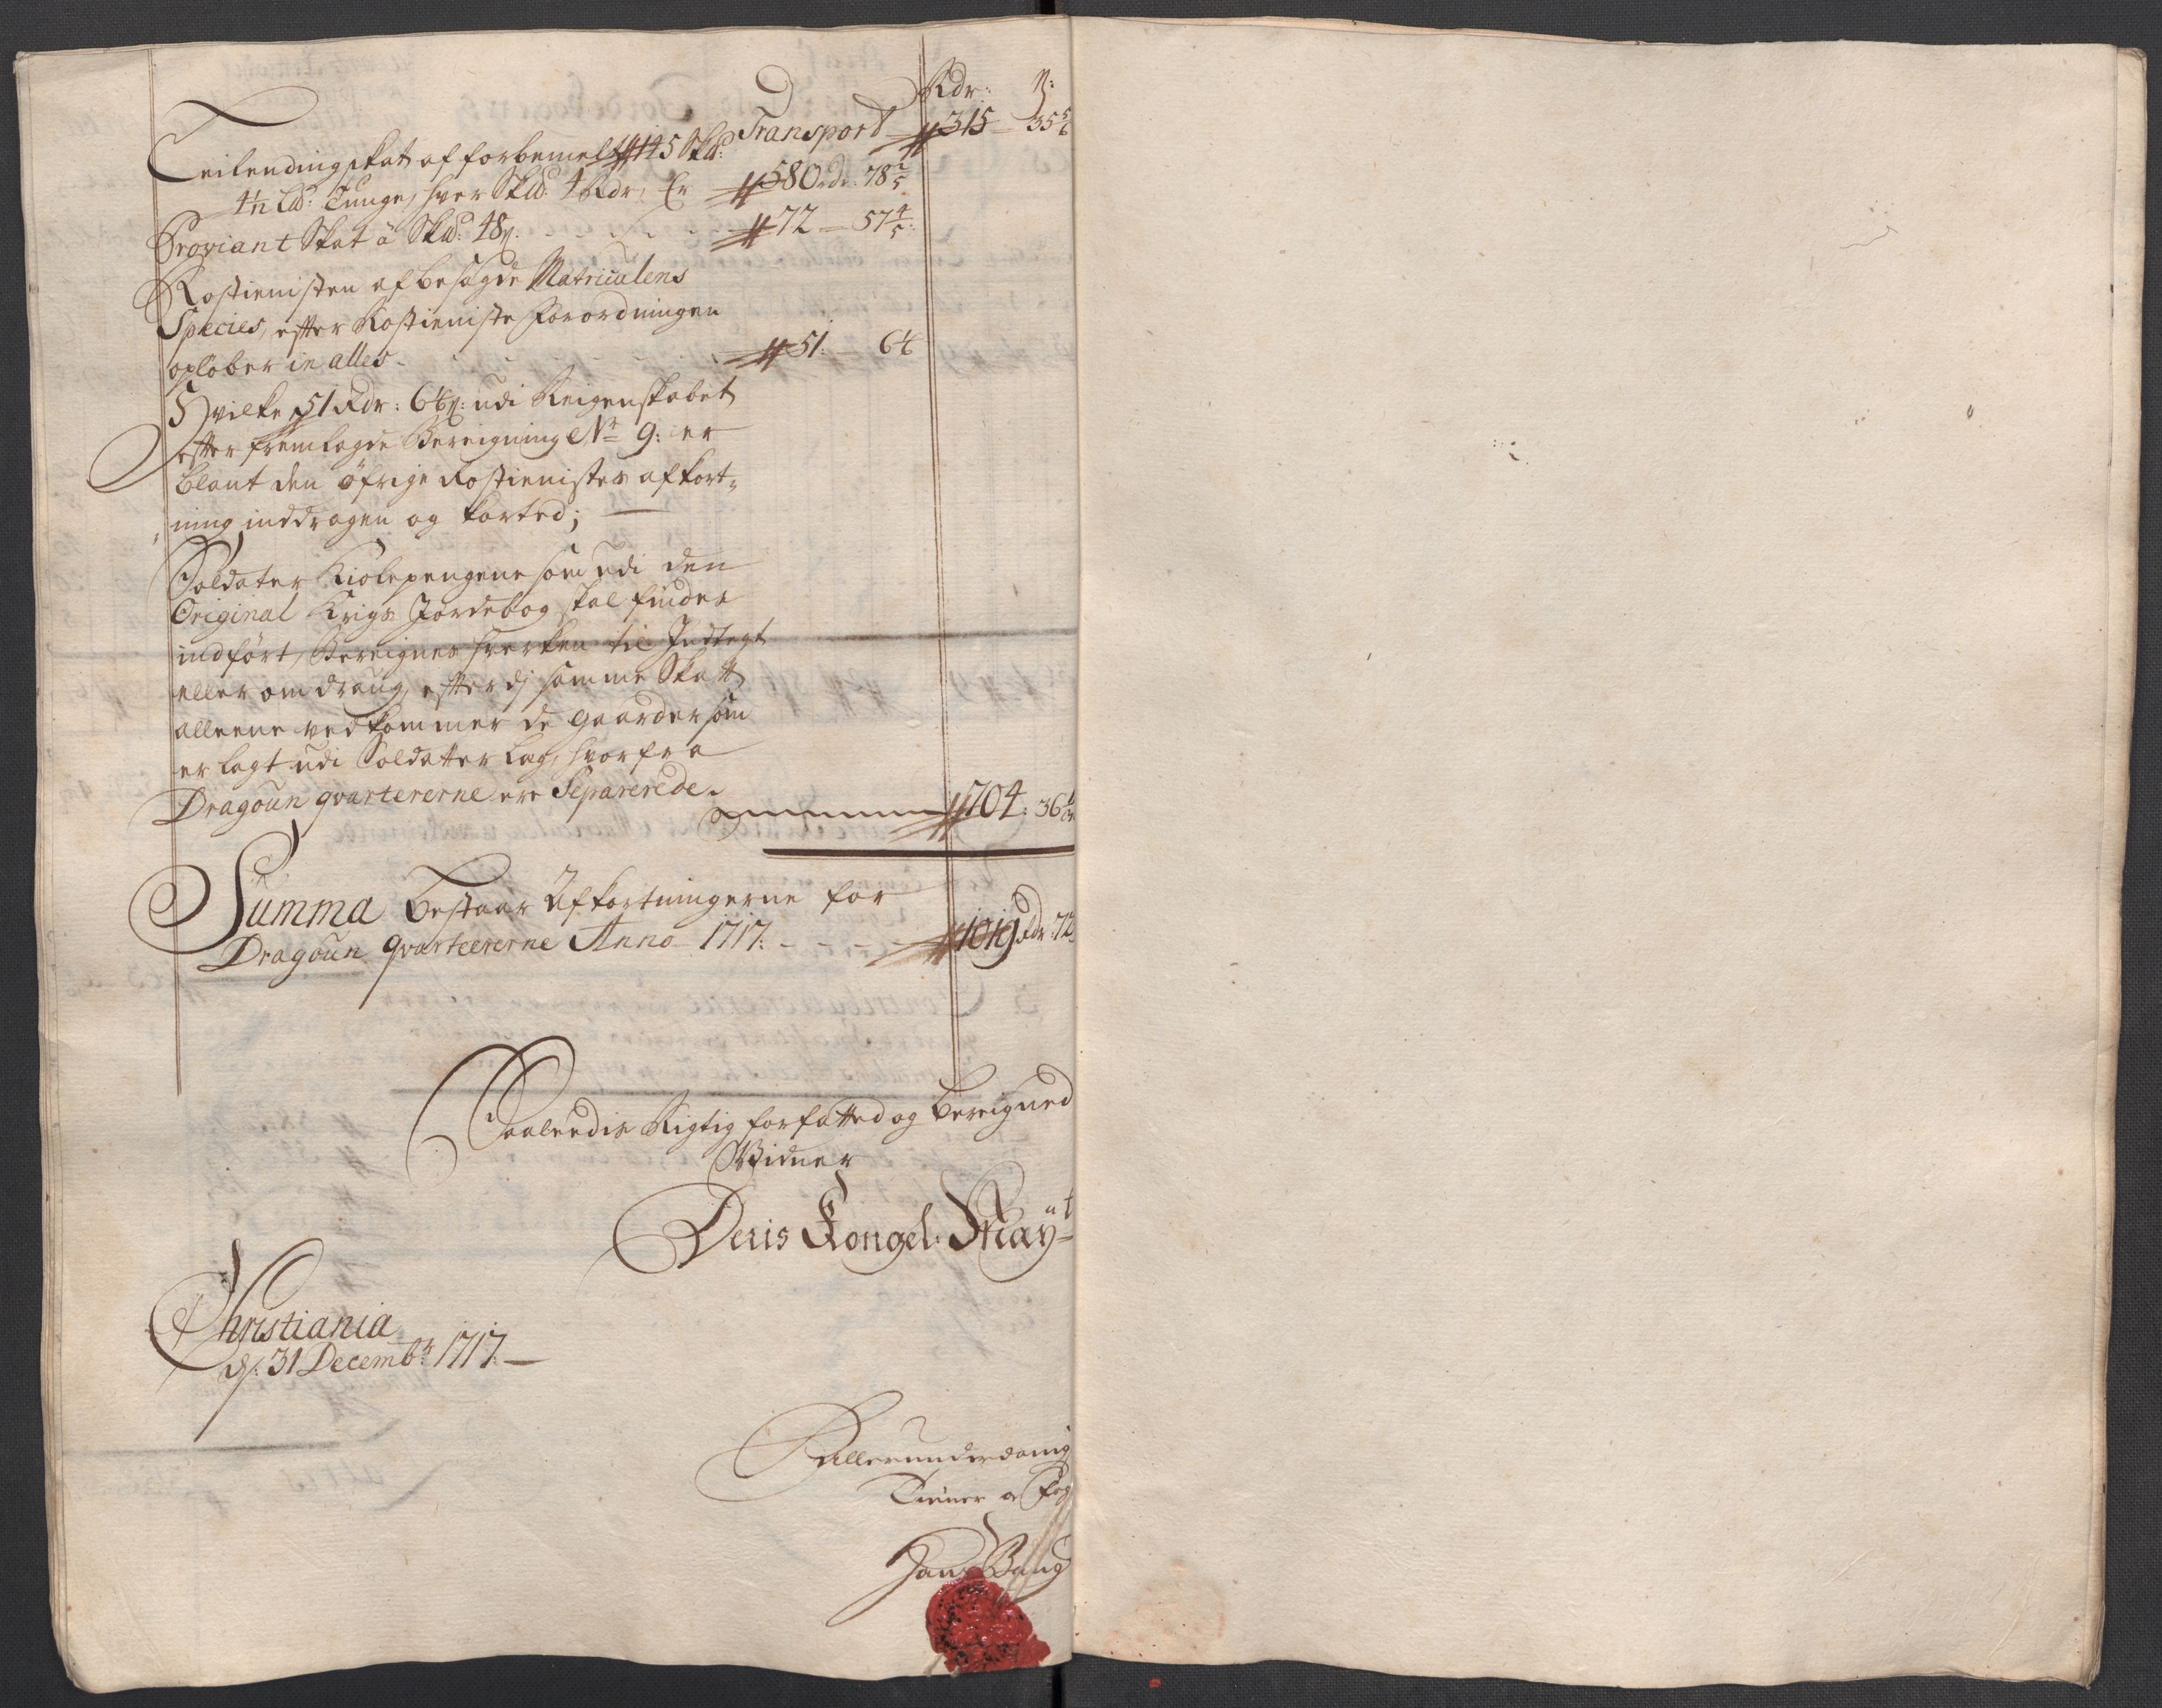 Rdr: ß:
Transport 315 35 5/6
Leilendingskat af forbemelte 145 Skd:
4½ Ld: Tunge, hver Skd: 4 Rdr, Er 580 rdr. 78 2/5
Proviant Skat à Skd: 48ß. 72 57 4/5
Rostienisten af besagde Matriculens
Species, efter Rostieniste forordningen
opløber in alles 51: 64
Hvilke 51 Rdr: 64ß: udi Reigenskabet
efter fremlagde Bereigning No 9: er
blant den øfrige Rostienistes afkort-
ning inddragen og korted;
Soldater Kiolepengene som udi den
Original Krigs Jordebog skal findes
indført, Bereignes hverken til Indtegt
eller omdraug, efterdj samme Skatt
alleene vedkommer de gaarder som
er lagt udi Soldatter Lag, hvorfra
Dragoun qvartererne ere Separerede.
704: 36
Summa Bestaar Afkortningerne for
Dragoun qvarteererne Anno 1717: 1019 Rdr: 72
Saaleedis Rigtig forfatted og bereigned
Vidner
Deris Kongel: Mayt
Christiania
ds: 31 Decembr 1717.
allerunderdanig
Tiener og Fog
Hans